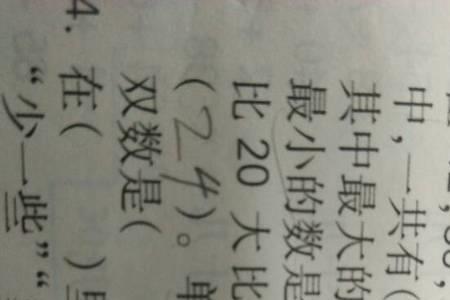 中，一共有(
其中最大的
最小的数是
比 20 大比
(24)。单
双数是(
4. 在( )里
“少一些”“